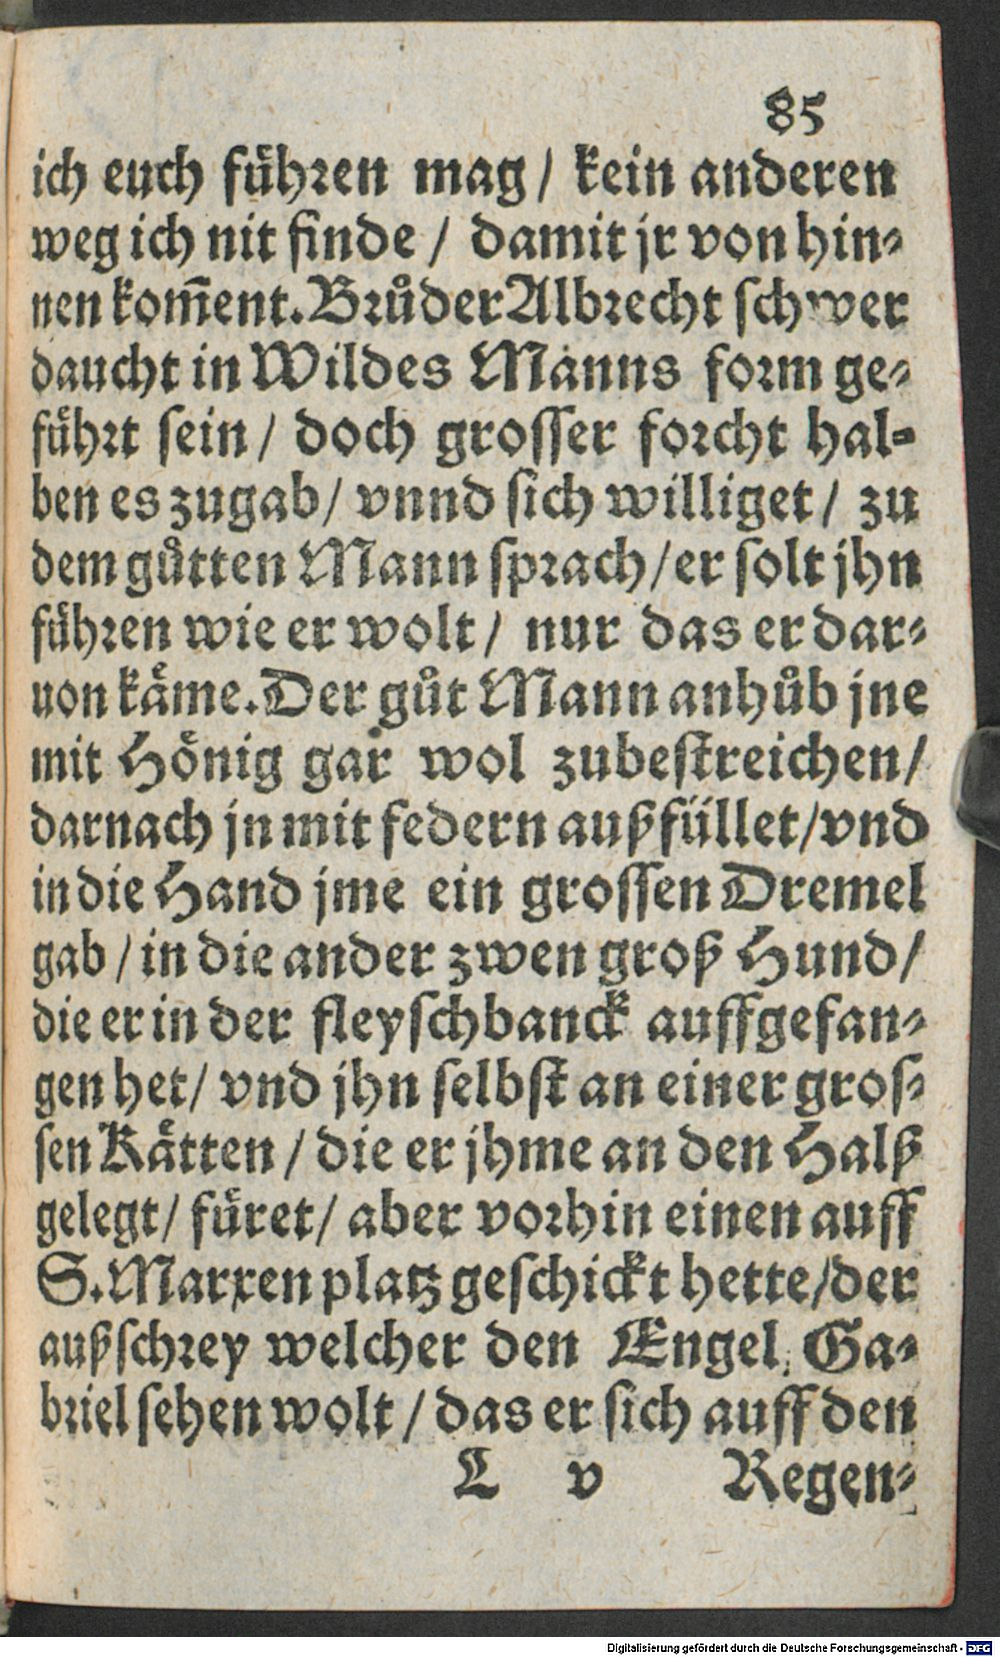 85
ich euch fuͤhren mag / kein anderen
weg ich nit finde / damit jr von hin⸗
nen kom̃ent. Bruͦder Albrecht schwer
daucht in Wildes Manns form ge⸗
fuͤhrt sein / doch grosser forcht hal⸗
ben es zugab / vnnd sich williget / zu
dem guͦtten Mann sprach / er solt jhn
fuͤhren wie er wolt / nur das er dar⸗
uon kaͤme. Der guͦt Mann anhuͦb jne
mit Hoͤnig gar wol zubestreichen /
darnach jn mit federn außfüllet / vnd
in die Hand jme ein grossen Dremel
gab / in die ander zwen groß Hund /
die er in der fleyschbanck auffgefan⸗
gen het / vnd jhn selbst an einer gros⸗
sen Kaͤtten / die er jhme an den Halß
gelegt / fuͤret / aber vorhin einen auff
S. Marxen platz geschickt hette / der
außschrey welcher den Engel Ga⸗
briel sehen wolt / das er sich auff den
L v Regen⸗
Digitalisierung gefördert durch die Deutsche Forschungsgemeinschaft - DFG